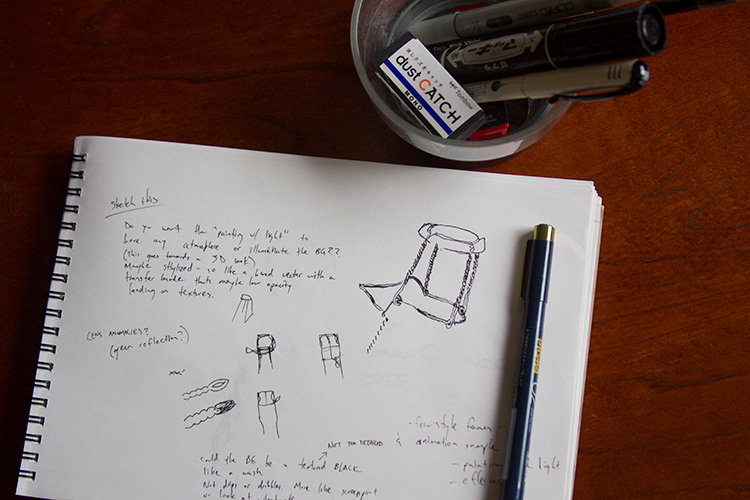 COPIC
マッキー
ゼブラ
消しクズをキャッチ
Tombow
dust CATCH
MONO
sketch this
Do you want the "painting w/ light" to
have any atmosphere or illuminate the BG??
(This goes towards a 3D look)
Maybe stylized - so like a vector with a
transfer mode thats maybe low opacity
landing on textures.
(LENS ANOMALIES?
(gear reflection?)
NOT TOO DETAILED
could the BG be a textured BLACK
like a wash
Not drips or dribbles. More like
or look at
- few style frames -
& animation sample
- painting light